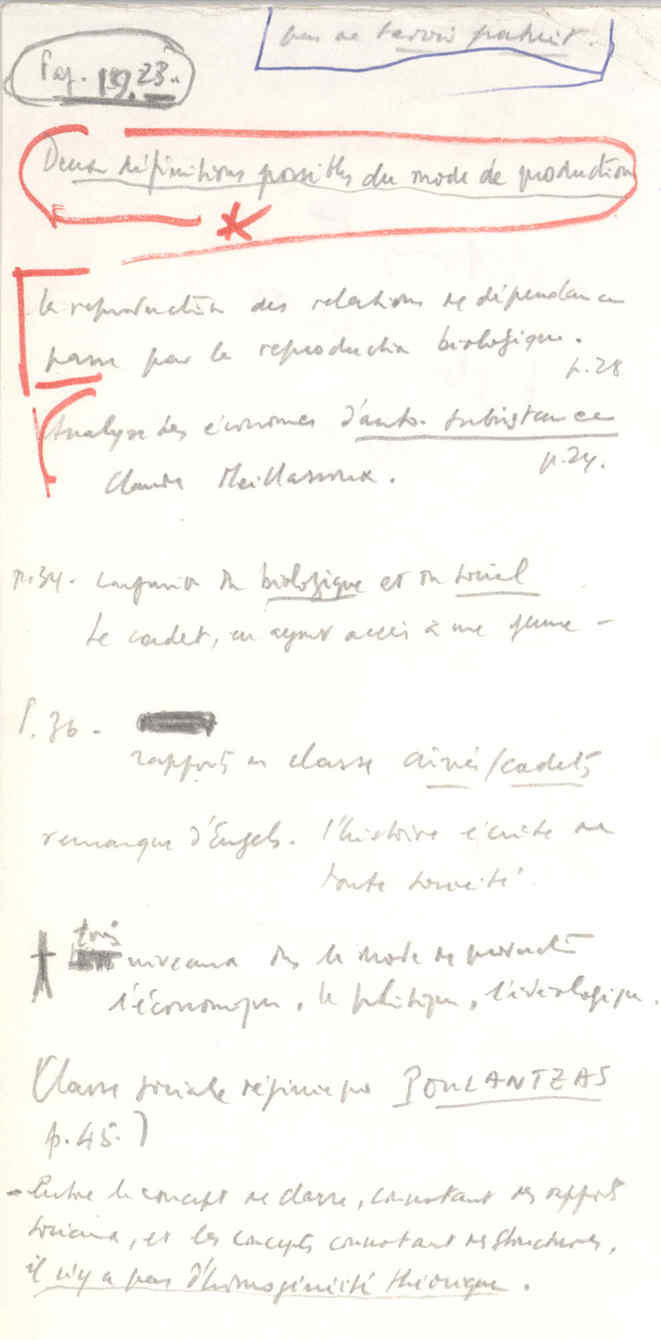 pas de savoir gratuit.
Pag. 19. 23.
Deux définitions possibles du mode de production
la reproduction des relations de dépendance
passe par la reproduction biologique.
p.28
Analyse des économies d'auto-subsistance
p.24.
Claude Meillassoux.
p.34. du biologique et du social
Le cadet, en ayant accès à une femme -
P.36 -
rapports de classe ainés/cadets
remarque d'Engels. l'histoire écrite de
toute société.
trois
niveaux ds le mode de production
l'économique, le politique, l'idéologique.
Classe sociale définie par POULANTZAS
p.45.)
- Entre le concept de classe, connotant des rapports
sociaux, et les concepts connotant des structures,
il n'y a pas d'homogénéité théorique.